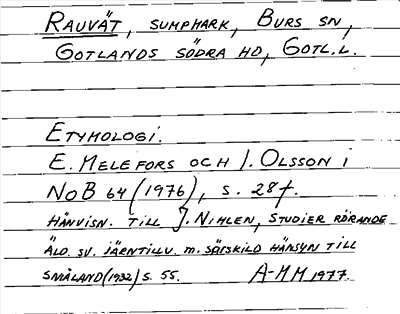 RAUVÄT, SUMPMARK, BURS SN,
GOTLANDS SÖDRA HD, GOTL.L.
ETYMOLOGI.
E. MELEFORS OCH I. OLSSON I
NOB 64 (1976), S. 28f.
HÄNVISN. TILL J. NIHLEN, STUDIER RÖRANDE
ÄLD. SV. JÄRNTILLV. M. SÄRSKILD HÄNSYN TILL
SMÅLAND (1932) S. 55. A-MM 1977.